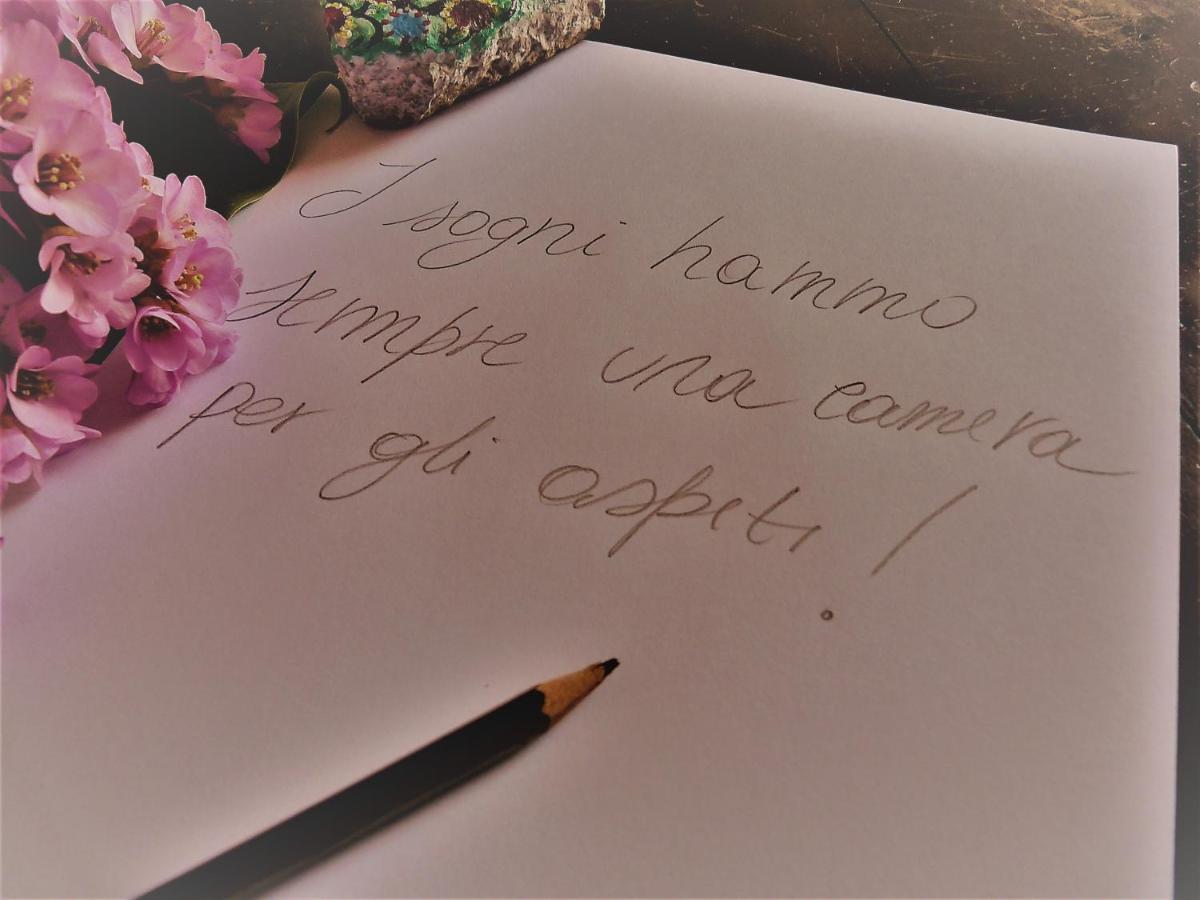 I sogni hanno
sempre una camera
per gli ospiti!